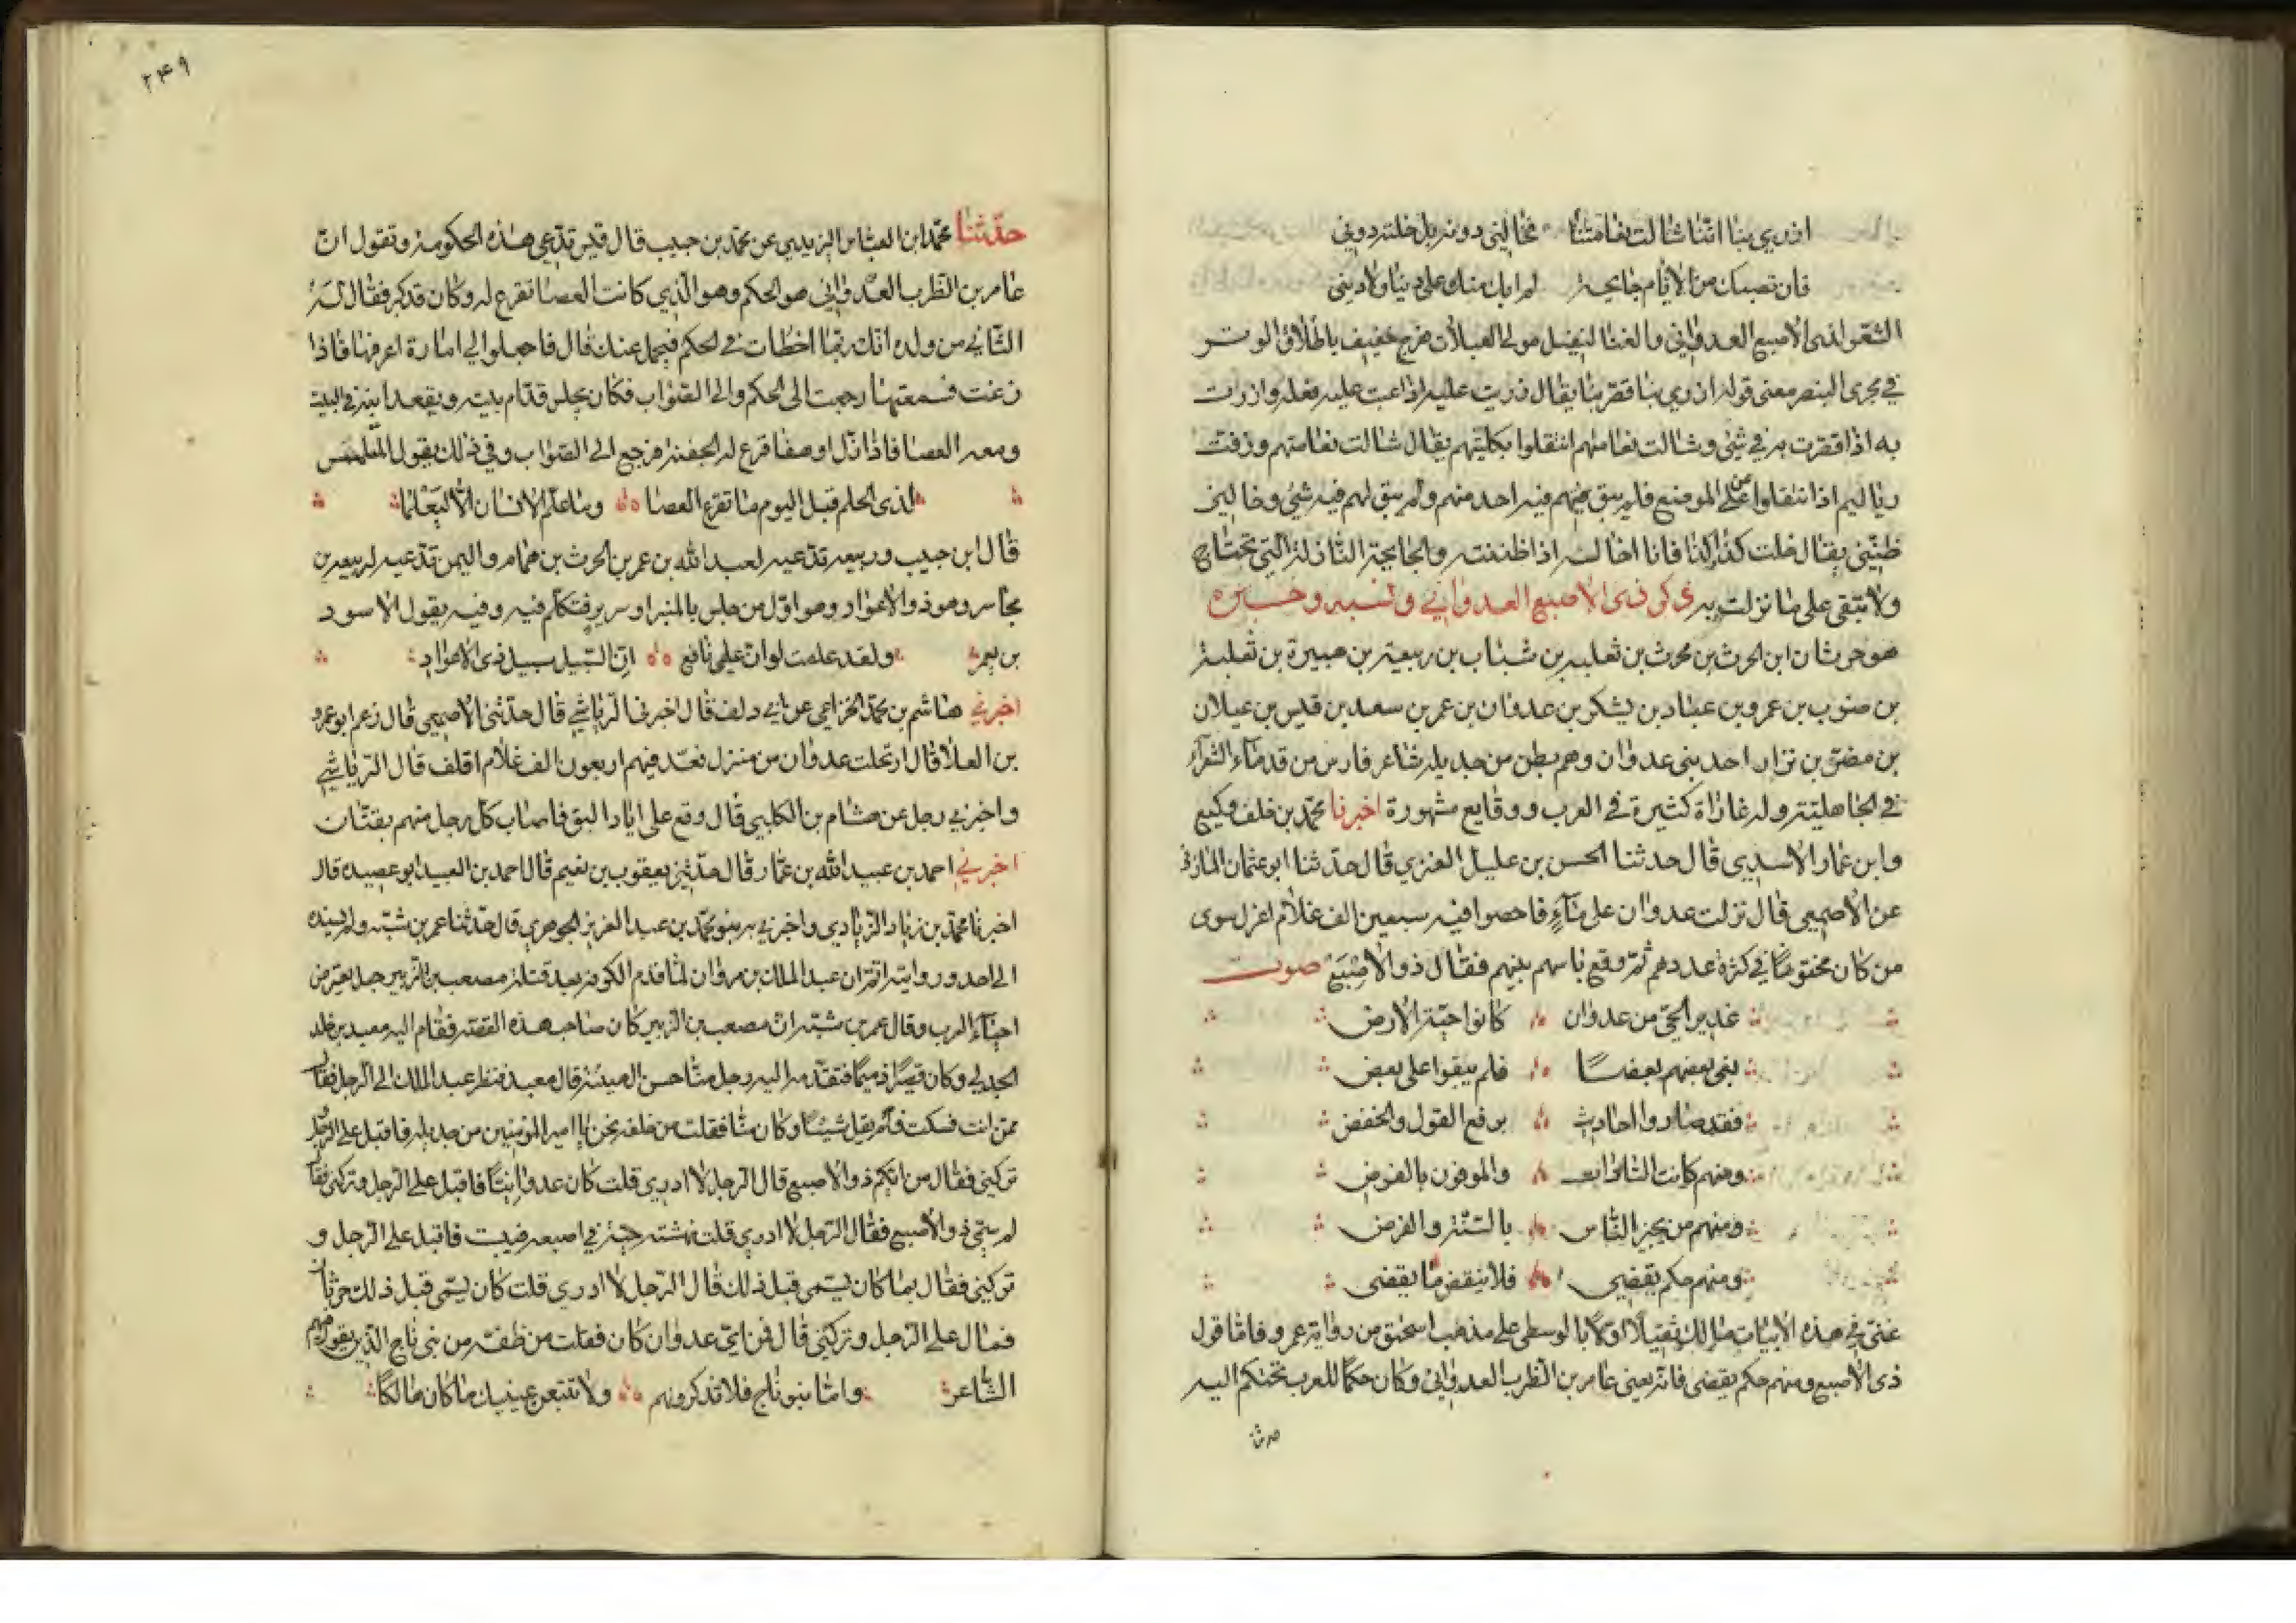 ازري بنا اننا شالت نعامتنا فخالني دونه بل خلته دوني
فان تصبك من الايام جايحة لم ابك منك على دنيا ولا دين
الشعر لذى الاصبع العدواني والغنا لفيل مولى العبلات هزج خفيف باطلاق الوتر
في مجرى البنصر معنى قوله ازري بنا قصر بنا يقال زريت عليه اذا عبت عليه فعله وازريت
به اذا قصرت به في شئ وشالت نعامتهم انتقلوا بكليتهم يقال شالت نعامتهم وزفت
رياليم اذا انتقلوا عن الموضع فلم يبق منهم فيه احد منهم ولم يبق لهم فيه شئ وخالني
ظنني يقال خلت كذا كذا فانا اخاله اذا ظننته والجايحة النازلة التي تجتاح
ولا تبقى على ما نزلت به ذكر ذى الاصبع العدواني ونسبه وخبره
هو حرثان ابن الحرث بن محرث بن ثعلبه بن شباب بن ربيعة بن هبيرة بن ثعلبة
بن ضوب بن عمرو بن عباد بن يشكر بن عدوان بن عمر بن سعد بن قيس بن عيلان
بن مضر بن نزار احد بني عدوان وهم بطن من جديله شاعر فارس من قدماء الشعراء
في الجاهلية وله غاراة كثيرة في العرب ووقايع مشهورة اخبرنا محمد بن خلف وكيع
وابن عمار الاسدي قال حدثنا الحسن بن عليل العنزي قال حدثنا ابو عثمان المازنى
عن الاصمعي قال نزلت عدوان على ماء فاحصوا فيه سبعين الف غلام اغرل سوى
من كان مختونا في كثرة عددهم ثم وقع باسهم بينهم فقال ذو الاصبع صوت
عذير الحي من عدوان كانوا حية الارض
بغى بعضهم بعضا فلم يبقوا على بعض
فقد صاروا احاديث برفع القول والخفض
ومنهم كانت السادات والموفون بالقرض
ومنهم من يجيز الناس بالسنة والفرض
ومنهم حكم يقضي فلا ينقض ما يقضى
غنى في هذه الابيات مالك ثقيلا اولا بالوسطى على مذهب اسحق من رواية عمرو فاما قول
ذى الاصبع ومنهم حكم يقضى فانه يعني عامر بن الظرب العدواني وكان حكما للعرب تحتكم اليه
٢٤٩
حدثنا محمد ابن العباس اليزيدي عن محمد بن حبيب قال قيس تدعي هذه الحكومة وتقول ان
عامر بن الظرب العدواني هو الحكم وهو الذي كانت العصا تقرع له وكان قد كبر فقال له
الثاني من ولده انك ربما اخطات في الحكم فيحمل عنك قال فاجعلوا لي امارة اعرفها فاذا
زغت فسمعتها رجعت الى الحكم والى الصواب فكان يجلس قدام بيته ويقعد ابنه في البيت
ومعه العصا فاذا زل او هفا قرع له الجفنة فرجع الى الصواب وفي ذلك يقول المتلمس
لذى الحلم قبل اليوم ما تقرع العصا وما علم الانسان الا ليعلما
قال ابن حبيب وربيعه تدعيه لعبد الله بن عمر بن الحرث بن همام واليمن تدعيه لربيعه بن
مخاس وهو ذو الاعواد وهو اول من جلس بالمنبر او سرير فتكلم فيه وفيه يقول الاسود
بن يعمر ولقد علمت لو ان علمى نافع ان السبيل سبيل ذى الاعواد
اخبرني هاشم بن محمد الخزاعي عن ابي دلف قال اخبرنى الرياشي قال حدثنى الاصمعي قال زعم ابو عمرو
بن العلا قال ارتحلت عدوان من منزل فعد فيهم اربعون الف غلام اقلف قال الرياشي
واخبرني رجل عن هشام بن الكلبي قال وقع على اياد البق فاصاب كل رجل منهم بقتان
اخبرني احمد بن عبيد الله بن عمار قال حدثني يعقوب بن نعيم قال احمد بن العبيد ابو عصيده قال
اخبرنا محمد بن زياد الزيادي واخبرني به محمد بن عبد العزيز الجوهري قال حدثنا عمر بن شبه ولم يسنده
الى احد وروايته اتم ان عبد الملك بن مروان لما قدم الكوفه بعد قتله مصعب بن الزبير جلس يعترض
احياء العرب وقال عمر بن شبه ان مصعب بن الزبير كان صاحب هذه القصة فقام اليه معبد بن خالد
الجدلي وكان قصيرا ذميما فتقدمه اليه رجل منا حسن الهيئة قال معبد فنظر عبد الملك الى الرجل فقال
ممن انت فسكت فلم يقل شيئا وكان منا فقلت من خلفه نحن يا امير المؤمنين من جديله فاقبل على الرجل
وتركنى فقال من ايكم ذو الاصبع قال الرجل لا ادري قلت كان عدوانيا فاقبل على الرجل وتركنى فقال
لم سمي ذو الاصبع فقال الرجل لا ادري قلت نهشته حية في اصبعه فيبست فاقبل على الرجل و
تركنى فقال بما كان يسمى قبل ذلك قال الرجل لا ادري قلت كان يسمى قبل ذلك حرثان
فمال على الرجل وتركنى قال فمن اي عدوان كان فقلت من خلفه من بنى ناج الذين يقول فيهم
الشاعر واما بنو ناج فلا تذكرونهم ولا تتبعن عينيك ما كان هالكا